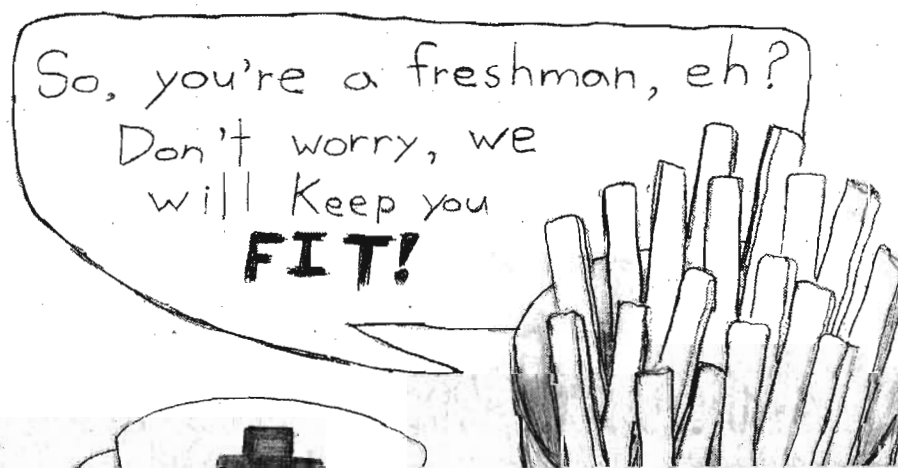 So, you're a freshman, eh?
Don't worry, we
will Keep you
FIT!